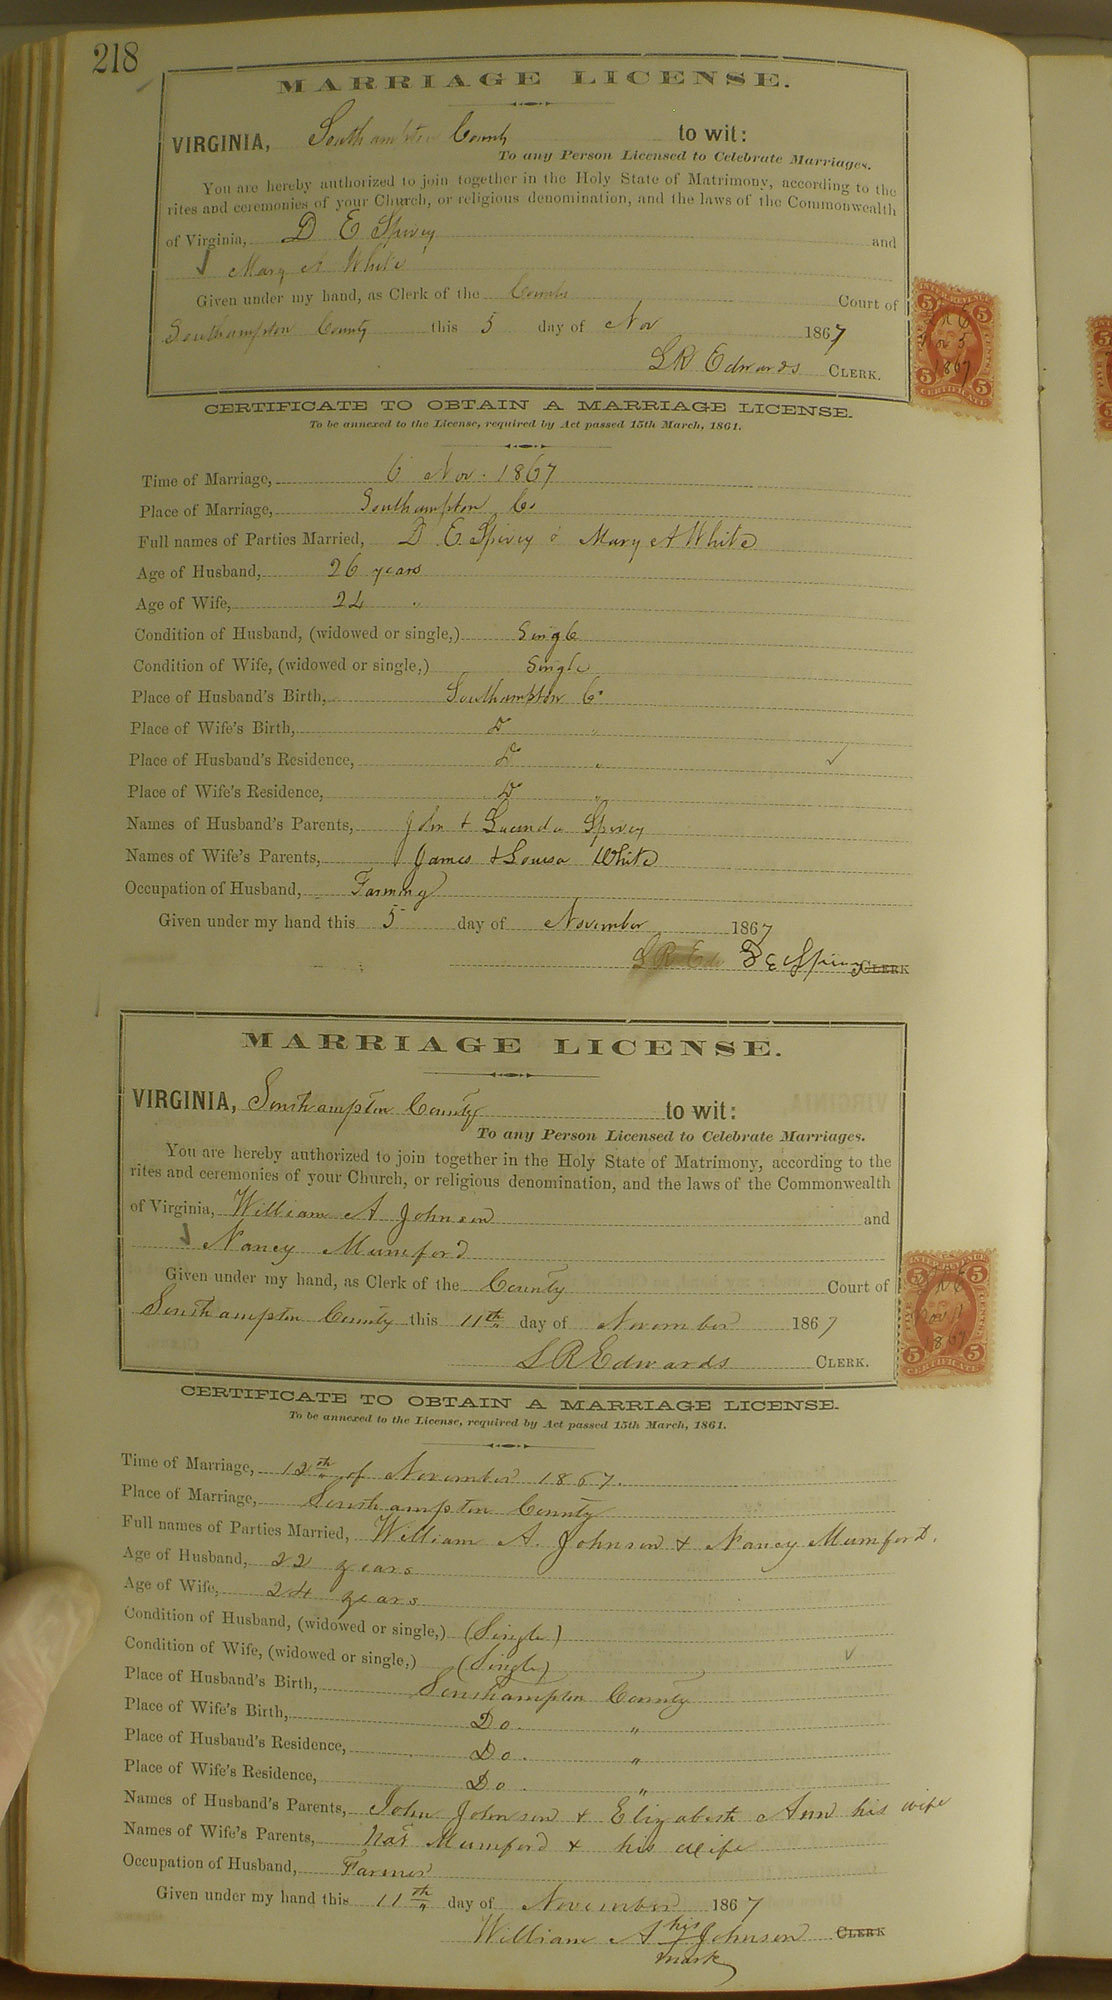 218
MARRIAGE LICENSE.
VIRGINIA, Southampton County to wit:
To any Person Licensed to Celebrate Marriages.
You are hereby authorized to join together in the Holy State of Matrimony, according to the
rites and ceremonies of your Church, or religious denomination, and the laws of the Commonwealth
of Virginia, D E Spivey and
Mary A White
Given under my hand, as Clerk of the County Court of
Southampton County this 5 day of Nov 1867
LR Edwards CLERK.
5 5
Nov 5
1867
5 5
CERTIFICATE
CERTIFICATE TO OBTAIN A MARRIAGE LICENSE.
To be annexed to the License, required by Act passed 15th March, 1861.
Time of Marriage, 6 Nov. 1867
Place of Marriage, Southampton Co
Full names of Parties Married, D E. Spivey & Mary A White
Age of Husband, 26 years
Age of Wife, 24 "
Condition of Husband, (widowed or single,) Single
Condition of Wife, (widowed or single,) Single
Place of Husband's Birth, Southampton Co
Place of Wife's Birth, Do "
Place of Husband's Residence, Do "
Place of Wife's Residence, Do "
Names of Husband's Parents, John & Lucinda Spivey
Names of Wife's Parents, James & Louisa White
Occupation of Husband, Farming
Given under my hand this 5 day of November 1867
LR Ed D E Spivey CLERK
MARRIAGE LICENSE.
VIRGINIA, Southampton County to wit:
To any Person Licensed to Celebrate Marriages.
You are hereby authorized to join together in the Holy State of Matrimony, according to the
rites and ceremonies of your Church, or religious denomination, and the laws of the Commonwealth
of Virginia, William A Johnson and
Nancy Mumford
Given under my hand, as Clerk of the County Court of
Southampton County this 11th day of November 1867
LR Edwards CLERK.
5 5
Nov 11
1867
5 5
CERTIFICATE
CERTIFICATE TO OBTAIN A MARRIAGE LICENSE.
To be annexed to the License, required by Act passed 15th March, 1861.
Time of Marriage, 12th of November 1867.
Place of Marriage, Southampton County
Full names of Parties Married, William A. Johnson & Nancy Mumford.
Age of Husband, 22 years
Age of Wife, 24 years
Condition of Husband, (widowed or single,) (Single)
Condition of Wife, (widowed or single,) (Single)
Place of Husband's Birth, Southampton County
Place of Wife's Birth, Do. "
Place of Husband's Residence, Do. "
Place of Wife's Residence, Do. "
Names of Husband's Parents, John Johnson & Elizabeth Ann his wife
Names of Wife's Parents, Nat Mumford & his wife
Occupation of Husband, Farmer
Given under my hand this 11th day of November 1867
William A his Johnson CLERK
mark